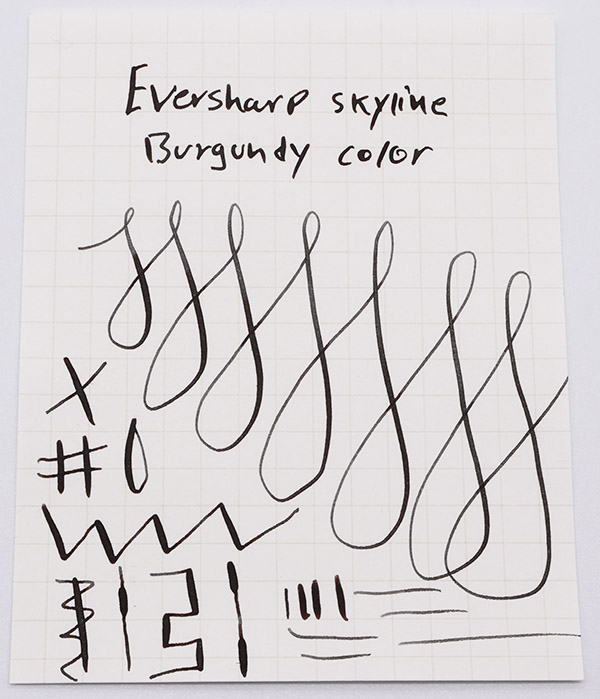 Eversharp skyline
Burgundy color
X
# 0